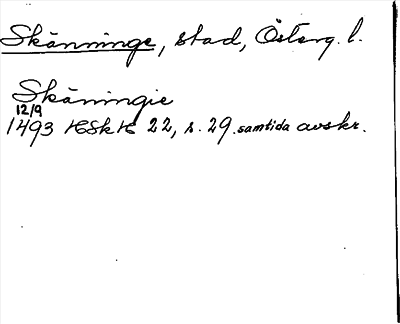 Skänninge, stad, Österg. l.
Skäningie
12/9
1493 HSkH 22, s. 29. samtida avskr.